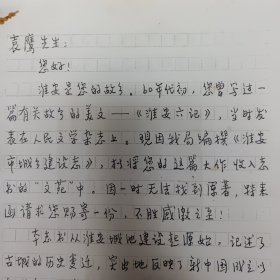 袁鹰先生：
您好！
淮安是您的故乡。60年代初，您曾写过一
篇有关故乡的美文——《淮安六记》，当时发
表在人民文学杂志上。现因我局编撰《淮安
市城乡建设志》，打祘您的这篇大作收入志
书的“文苑”中。因一时无法找到原著，特来
函请求您赐寄一份，不胜感激之至！
本志书从淮安城池建设起源始，记述了
古城的历史变迁，突出地反映了新中国成立以